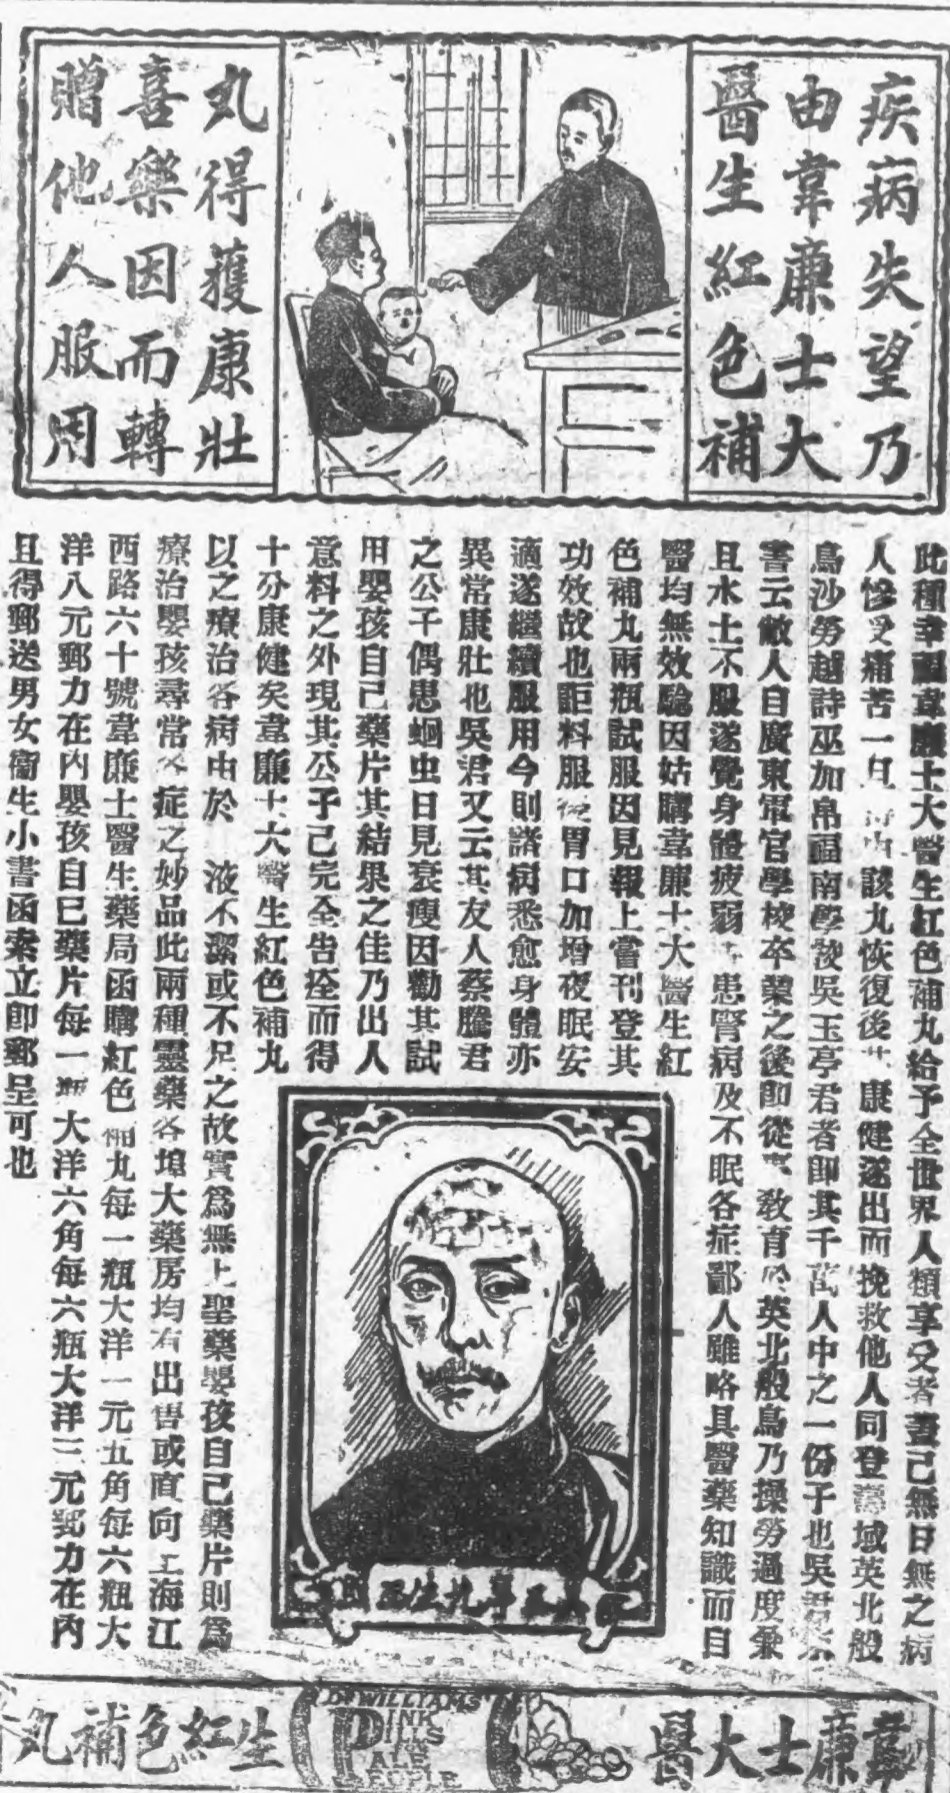 疾病失望乃
由韋廉士大
醫生紅色補
丸得獲康壯
喜樂因而轉
贈他人服用
此種幸福韋廉士大醫生紅色補丸給予全世界人類享受者蓋已無日無之病
人慘受痛苦一旦 由該丸恢復後其康健遂出而挽救他人同登壽域英北般
鳥沙勞越詩巫加帛福南學校吳玉亭君者即其千萬人中之一份子也吳君來
書云敝人自廣東軍官學校卒業之後即從事教育於英北般鳥乃操勞過度兼
且水土不服遂覺身體疲弱 患腎病及不眠各症鄙人雖略具醫藥知識而自
醫均無效驗因姑購韋廉士大醫生紅
色補丸兩瓶試服因見報上嘗刊登其
功效故也詎料服後胃口加增夜眠安
適遂繼續服用今則諸病悉愈身體亦
異常康壯也吳君又云其友人蔡騰君
之公子偶患蛔虫日見衰瘦因勸其試
用嬰孩自己藥片其結果之佳乃出人
意料之外現其公子已完全告痊而得
十分康健矣韋廉士大醫生紅色補丸
以之療治各病由於 液不潔或不足之故實爲無上聖藥嬰孩自己藥片則爲
療治嬰孩尋常各症之妙品此兩種靈藥各埠大藥房均有出售或直向上海江
西路六十號韋廉士醫生藥局函購紅色補丸每一瓶大洋一元五角每六瓶大
洋八元郵力在內嬰孩自已藥片每一瓶大洋六角每六瓶大洋三元郵力在內
且得郵送男女衞生小書函索立即郵呈可也
韋廉士大醫
生紅色補丸
DR WILLIAMS'
PINK
PILLS
FOR
PALE
PEOPLE